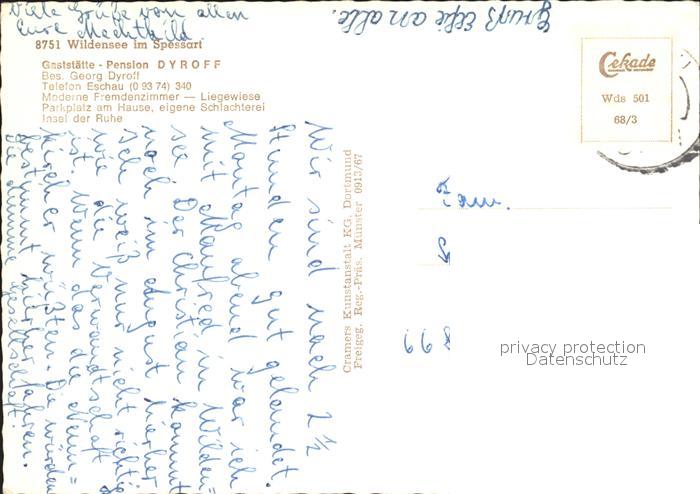 Viele Grüße von allen
Eure Mechthild
Gruß Elfie an alle.
8751 Wildensee im Spessart
Gaststätte - Pension DYROFF
Bes. Georg Dyroff
Telefon Eschau (0 93 74) 340
Moderne Fremdenzimmer — Liegewiese
Parkplatz am Hause, eigene Schlachterei
Insel der Ruhe
Wir sind nach 2 1/2
Stunden gut gelandet.
Montag abend war ich
mit Manfred in Wilden=
see. Der Christian kommt
noch im August hierher
ich weiß nur nicht richtig
wie die Verwandtschaft
ist. Wenn das die Neun=
kircher wüßten. Die würden
bestimmt hierher fahren.
Die dumme Gesellschaft.
Cramers Kunstanstalt KG, Dortmund
Freigeg. Reg.-Präs. Münster 0913/67
Cekade
Wds 501
68/3
Fam.
899
privacy protection
Datenschutz